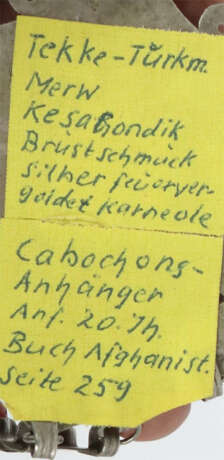 Tekke-Türkm.
Merw
Kesabondik
Brüstschmuck
silber feuerver-
goldet Karneole
Cabochons-
Anhänger
Anf. 20. Jh.
Buch Afghanist.
Seite 259